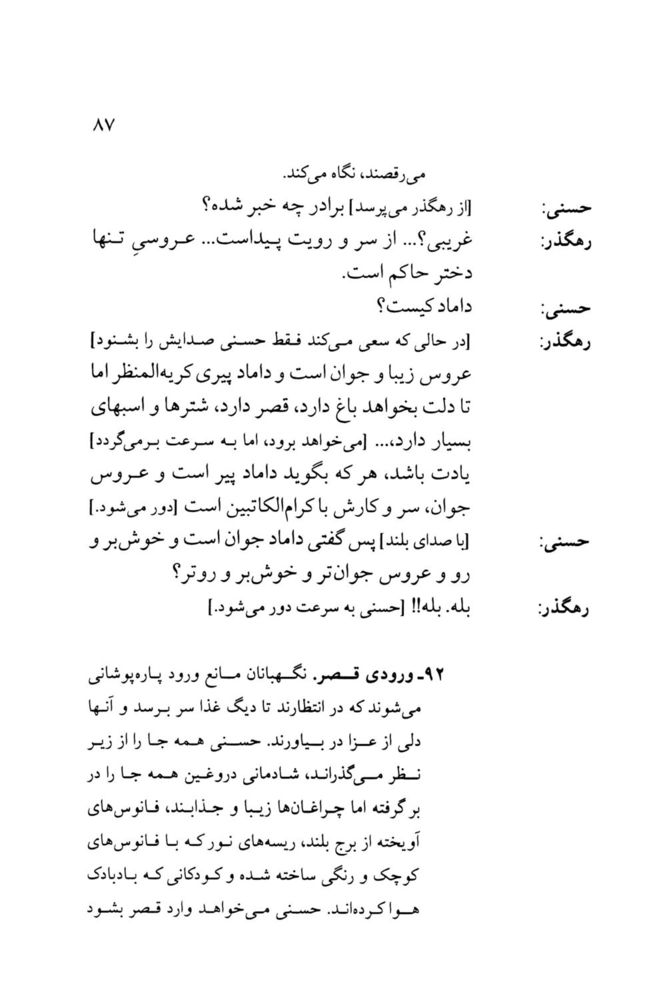 ۸۷
می‌رقصند، نگاه می‌کند.
حسنی: [از رهگذر می‌پرسد] برادر چه خبر شده؟
رهگذر: غریبی؟... از سر و رویت پیداست... عروسیِ تنها
دختر حاکم است.
حسنی: داماد کیست؟
رهگذر: [در حالی که سعی می‌کند فقط حسنی صدایش را بشنود]
عروس زیبا و جوان است و داماد پیری کریه‌المنظر اما
تا دلت بخواهد باغ دارد، قصر دارد، شترها و اسبهای
بسیار دارد،... [می‌خواهد برود، اما به سرعت برمی‌گردد]
یادت باشد، هر که بگوید داماد پیر است و عروس
جوان، سر و کارش با کرام‌الکاتبین است [دور می‌شود.]
حسنی: [با صدای بلند] پس گفتی داماد جوان است و خوش‌بر و
رو و عروس جوان‌تر و خوش‌بر و روتر؟
رهگذر: بله. بله!! [حسنی به سرعت دور می‌شود.]
۹۲ـ ورودی قصر. نگهبانان مانع ورود پاره‌پوشانی
می‌شوند که در انتظارند تا دیگ غذا سر برسد و آنها
دلی از عزا در بیاورند. حسنی همه جا را از زیر
نظر می‌گذراند، شادمانی دروغین همه جا را در
بر گرفته اما چراغان‌ها زیبا و جذابند، فانوس‌های
آویخته از برج بلند، ریسه‌های نور که با فانوس‌های
کوچک و رنگی ساخته شده و کودکانی که بادبادک
هوا کرده‌اند. حسنی می‌خواهد وارد قصر بشود